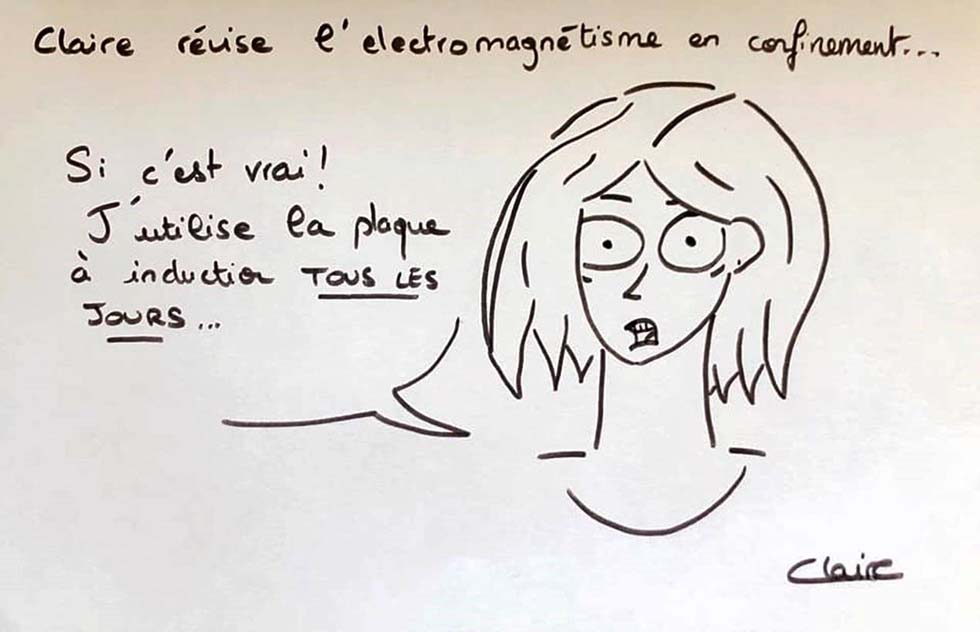 Claire révise l'electromagnétisme en confinement...
Si c'est vrai!
J'utilise la plaque
à induction TOUS LES
JOURS...
Claire